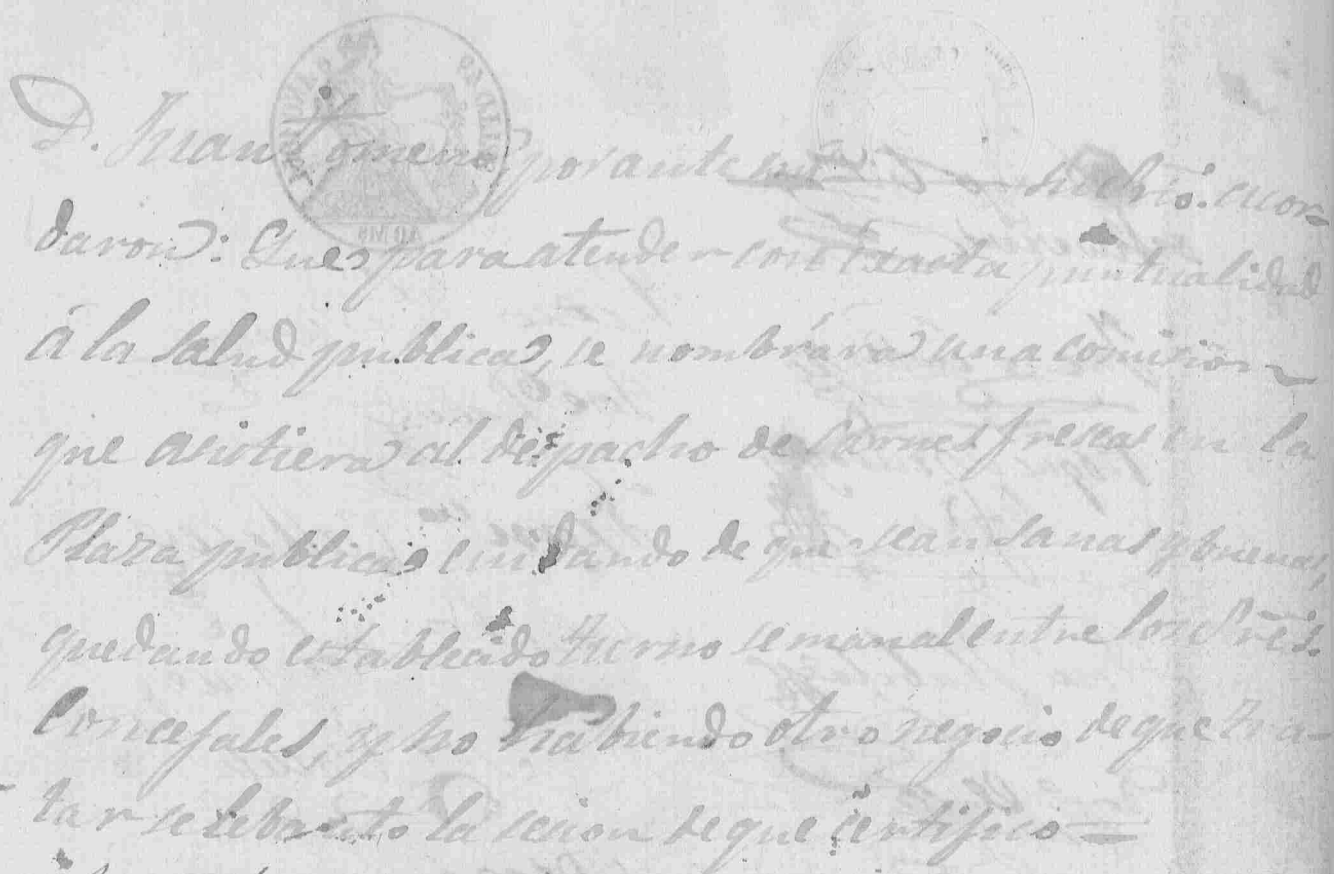 D. Juan Romero, por ante mi su Srio. acor=
daron: Que para atender con exacta puntualidad
á la salud publica, se nombrára una comision
que asistiera al despacho de Carnes frescas en la
Plaza publica cuidando de que sean sanas y buenas,
quedando establecido turno semanal entre los Sres.
Concejales, y no habiendo otro negocio de que tra-
tar se lebanto la secion de que certifico=